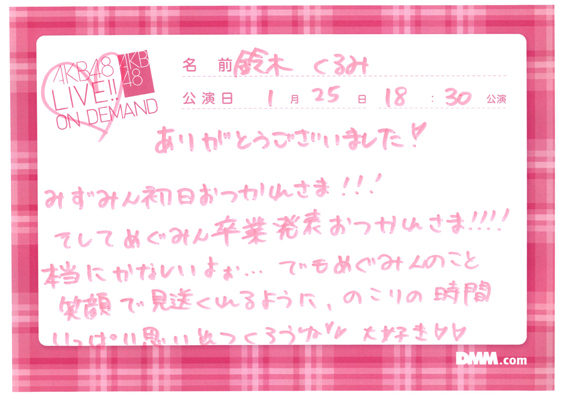 AKB48
LIVE!!
ON DEMAND
AKB
48
名 前 鈴木 くるみ
公演日 1月25日 18:30 公演
ありがとうございました!♡
みずみん初日おつかれさま!!!
そしてめぐみん卒業発表おつかれさま!!!!
本当にかなしいよぉ… でもめぐみんのこと
笑顔で見送くれるように、のこりの時間
いっぱい思いでつくろうね♡♡ 大好き♡♡
DMM.com